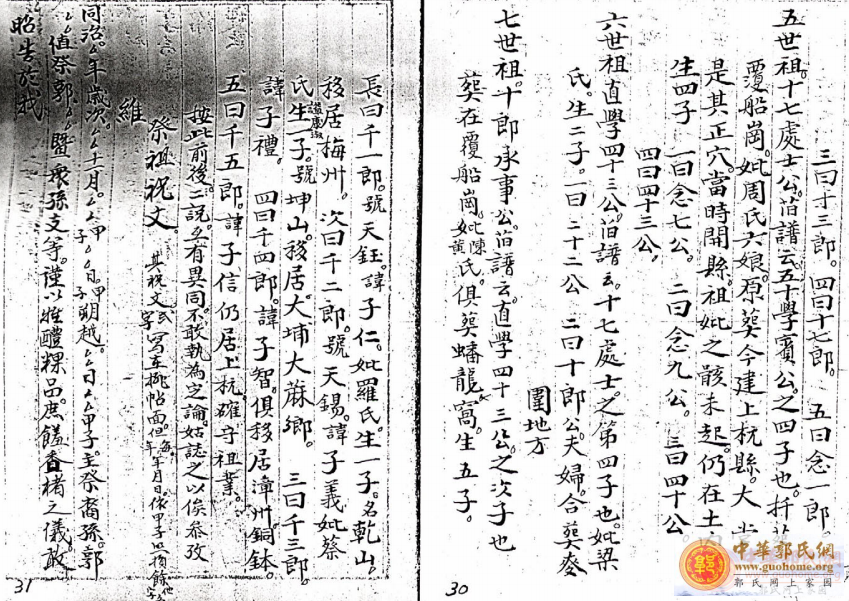 三曰才三郎。四曰十七郎。五曰念一郎。
五世祖。十七處士公。旧譜云五十學賓公。之四子也。
覆船崗。妣周氏六娘。原葬今建上杭縣。大
是其正穴。當時開縣。祖妣之骸未起。仍在土
生四子 一曰念七公。二曰念九公。三曰四十公
四曰四十三公。
六世祖直學四十三公。旧譜云。十七處士。之第四子也。妣梁
氏。生二子。一曰二十二公 二曰十郎公。夫婦合葬
圍地方
七世祖。十郎承事公。旧譜云。直學四十三公。之次子也
葬在覆船崗。妣陳黃氏。俱葬蟠龍窩。生五子。
30
長曰千一郎。號天鈺。諱子仁。妣羅氏。生一子。名乾山。
移居梅州。次曰千二郎。號天錫。諱子義妣蔡
氏生一子。號坤山。移居大埔大蔴鄉。三曰千三郎。
諱子禮。四曰千四郎。諱子智。俱移居漳州銅鉢。
五曰千五郎。諱子信仍居上杭。確守祖業。
按此前後。二説。有異同。不敢執為定論。姑誌之以俟參攷
祭祖祝文
維
同治 年歲次 十月 甲子 日 甲子 朔越 日 甲子。主祭裔孫郭
值祭郭 暨衆孫支等。謹以牲醴粿品。庶饈香楮之儀。敢
昭告於我
31
中華郭氏網
www.guohome.org
郭氏网上家园